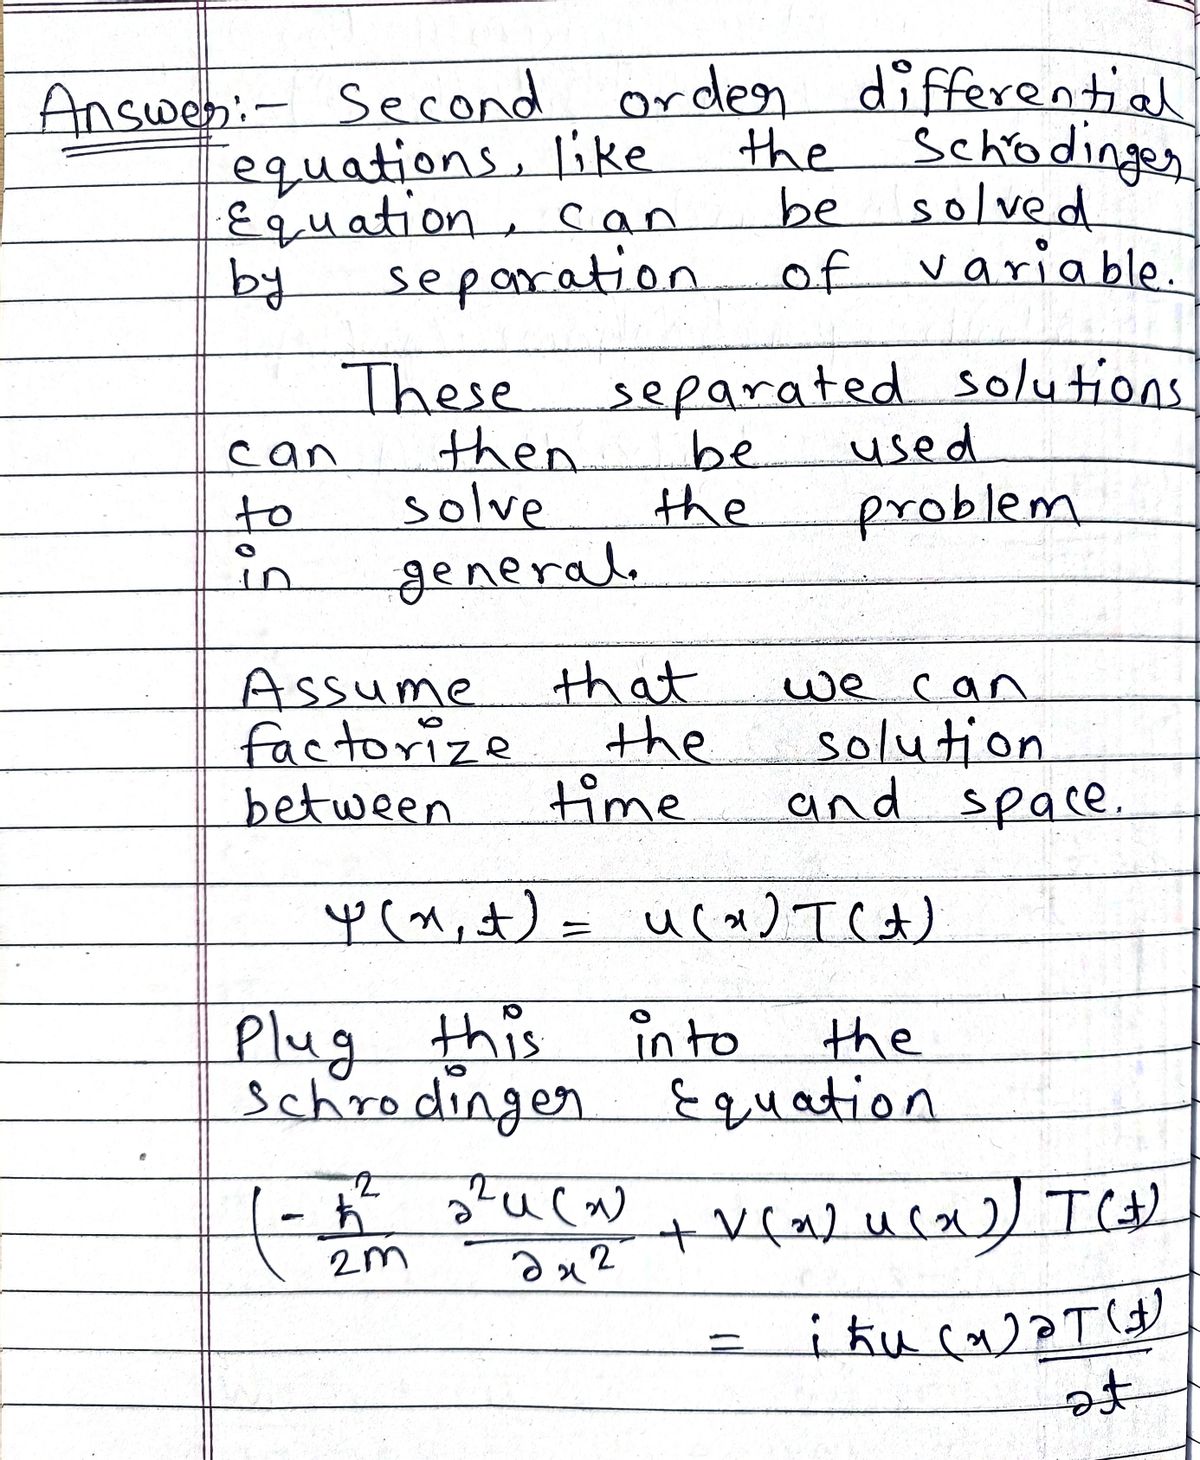 Answer:- Second order differential
equations, like the Schrodinger
Equation, can be solved
by separation of variable.
These separated solutions
can then be used
to solve the problem
in general.
Assume that we can
factorize the solution
between time and space.
Ψ(x,t) = u(x)T(t)
Plug this into the
Schrodinger Equation
(-ℏ²/2m ∂²u(x)/∂x² + V(x) u(x)) T(t)
= iℏu(x) ∂T(t)/∂t